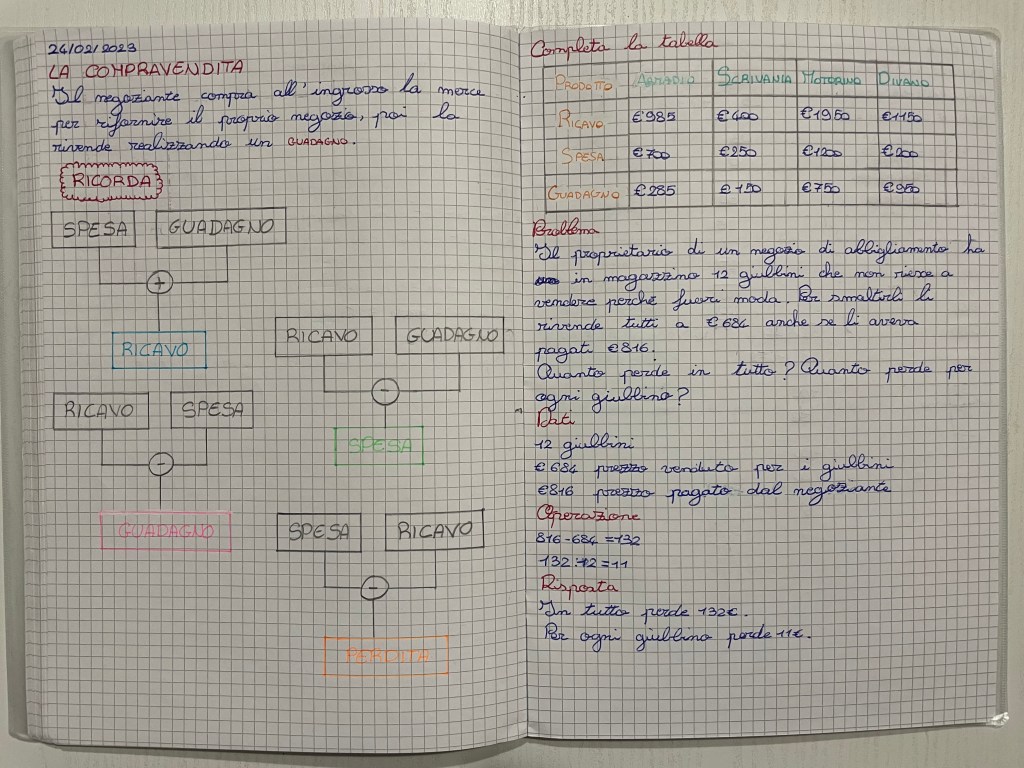 24/02/2023
LA COMPRAVENDITA
Il negoziante compra all'ingrosso la merce
per rifornire il proprio negozio, poi la
rivende realizzando un GUADAGNO.
RICORDA
SPESA GUADAGNO
+
RICAVO
RICAVO GUADAGNO
-
SPESA
RICAVO SPESA
-
GUADAGNO
SPESA RICAVO
-
PERDITA
Completa la tabella
PRODOTTO ARMADIO SCRIVANIA MOTORINO DIVANO
RICAVO €985 €400 €1950 €1150
SPESA €700 €250 €1200 €200
GUADAGNO €285 €150 €750 €950
Problema
Il proprietario di un negozio di abbigliamento ha
in magazzino 12 giubbini che non riesce a
vendere perché fuori moda. Per smaltirli li
rivende tutti a €684 anche se li aveva
pagati €816.
Quanto perde in tutto? Quanto perde per
ogni giubbino?
Dati
12 giubbini
€684 prezzo venduto per i giubbini
€816 prezzo pagato dal negoziante
Operazione
816-684=132
132:12=11
Risposta
In tutto perde 132€.
Per ogni giubbino perde 11€.